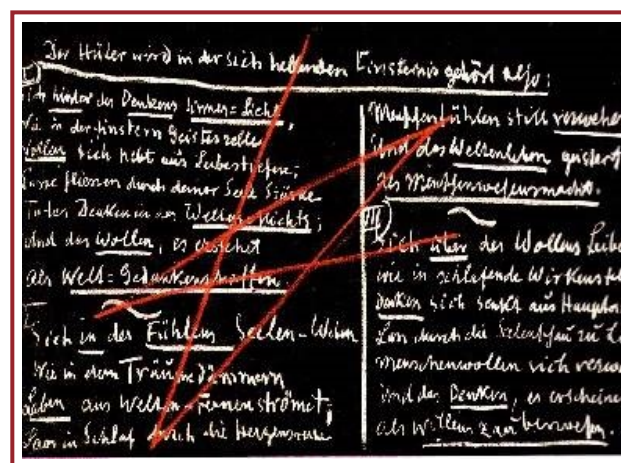 Der Hüter wird in der sich hellenden Finsternis gehört also:
I)
Sieh hinter des Denkens Sinnes-Licht,
Wie in der finstern Geisteszelle
Wollen sich hebt aus Leibestiefen;
Lasse fliessen durch deiner Seele Stärke
Totes Denken in das Weltennichts;
Und das Wollen, es erstehet
Als Welt-Gedankenschaffen.
Sieh in des Fühlens Seelen-Weben
Wie in dem Träumedämmern
Leben aus Welten-Fernen strömet;
Lass in Schlaf durch die Herzensruhe
Menschenfühlen still verwehen
Und das Weltenleben geistert
Als Menschenwesensmacht.
III)
Sieh über des Wollens Leibe
Wie in schlafende Wirkensfel
Denken sich senkt aus Hauptes
Lass durch die Seelenschau zu L
Menschenwollen sich verwa
Und das Denken, es erscheine
Als Willenszauberwesen.